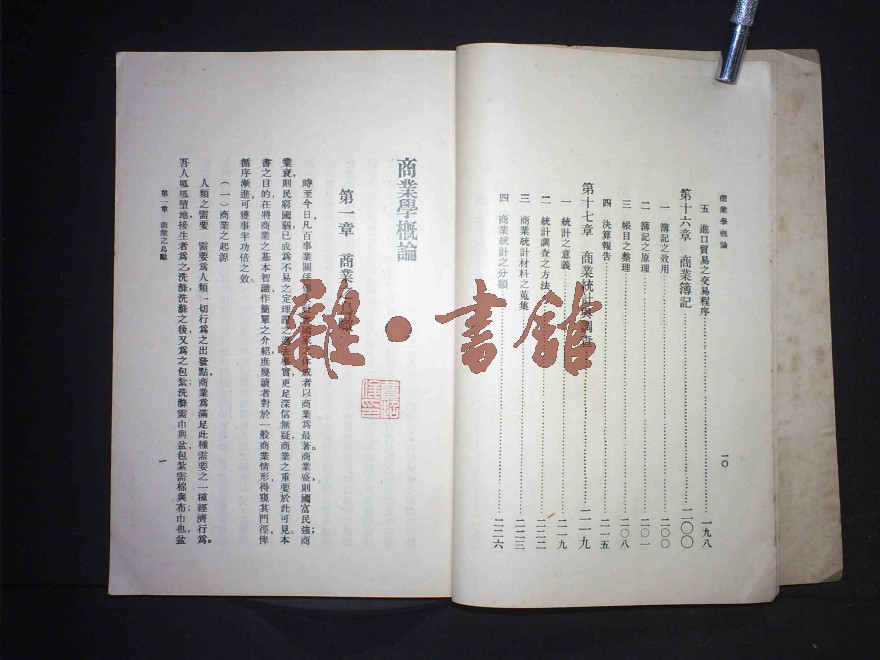 商業學概論
一〇
五 進口貿易之交易程序………一九八
第十六章 商業簿記………二〇〇
一 簿記之效用………二〇〇
二 簿記之原理………二〇一
三 帳目之整理………二〇八
四 決算報告………二一五
第十七章 商業統計與調查………二一九
一 統計之意義………二一九
二 統計調查之方法………二二二
三 商業統計材料之蒐集………二二三
四 商業統計之分類………二二六
雜·書館
商業學概論
第一章 商業之
時至今日,凡百事業關係
者以商業爲最著商業盛則國富民強;商
業衰則民窮國弱已成爲不易之定理證之過去事實更足深信無疑商業之重要於此可見本
書之目的在將商業之基本智識作簡單之介紹庶幾讀者對於一般商業情形得窺其門徑俾
循序漸進可獲事半功倍之效。
(一)商業之起源
人類之需要 需要爲人類一切行爲之出發點,商業爲滿足此種需要之一種經濟行爲。
吾人呱呱墮地接生者爲之洗滌洗滌之後又爲之包紮;洗滌需巾與盆包紮需棉與布巾也盆
第一章 商業之
一